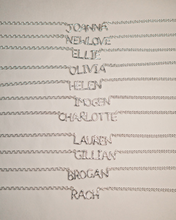 JOANNA
NEWLOVE
ELLIE
OLIVIA
HELEN
IMOGEN
CHARLOTTE
LAUREN
GILLIAN
BROGAN